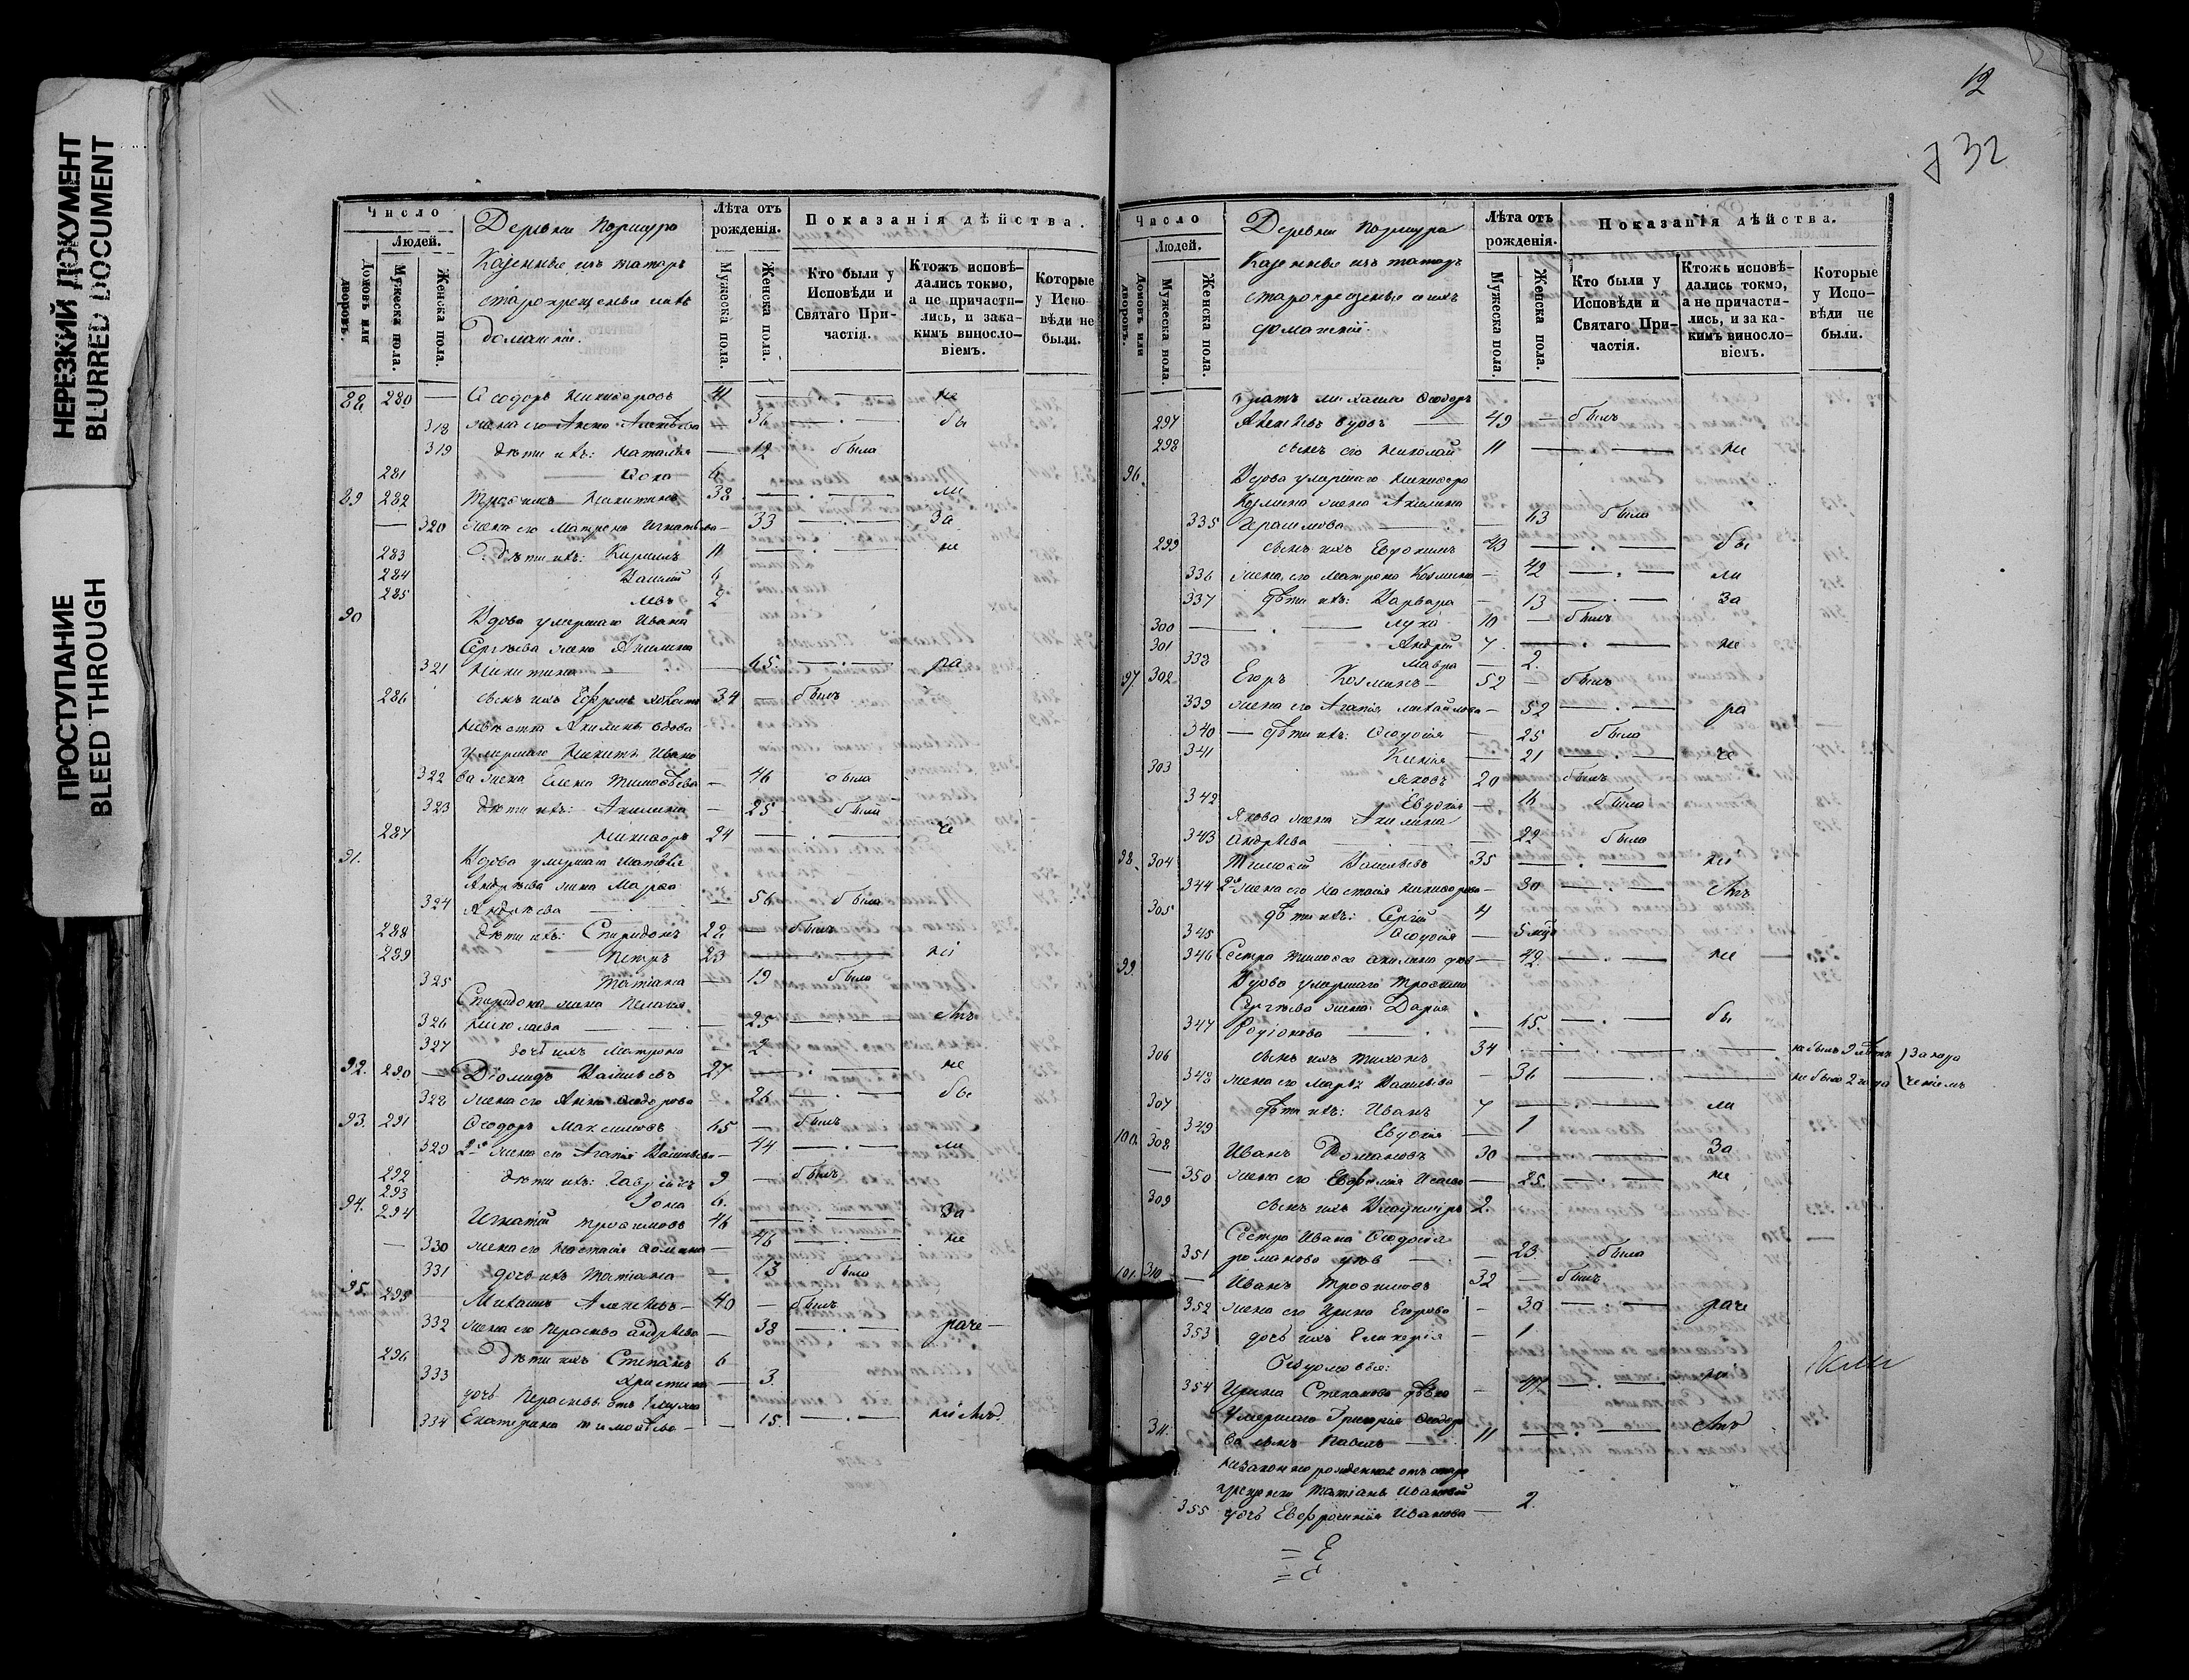 НЕРЕЗКИЙ ДОКУМЕНТ
BLURRED DOCUMENT
ПРОСТУПАНИЕ
BLEED THROUGH
Число
Домовъ или дворовъ.
Людей.
Мужеска пола.
Женска пола.
Деревни
Казенные изъ татаръ
старокрещеные и ихъ
домашніе.
Лѣта отъ рожденія.
Мужеска пола.
Женска пола.
Показанія дѣйства.
Кто были у Исповѣди и Святаго Причастія.
Ктожъ исповѣдались токмо, а не причастились, и за какимъ винословіемъ.
Которые у Исповѣди не были.
88 280 — Ѳеодоръ Никифоровъ 41 — не
318 жена его Анна Алексѣева 36 — бы
319 дѣти ихъ: Наталія — 12 была
281 Ѳома 6
89 282 Трофимъ Никитинъ 38 — ли
— 320 жена его Матрена Игнатьева — 33 — За
283 дѣти ихъ: Кириллъ 11 — не
284 Василій
285 Левъ 2
90 Вдова умершаго Ивана
Сергѣева жена Акилина
321 Никитина — 65 — ра
286 сынъ ихъ Ефремъ 34 — былъ
невѣстка вдова
умершаго Никиты Ивано
322 ва жена Елена Тимоѳеева — 46 была
323 дѣти ихъ: Акилина — 25 была
287 Никифоръ 24 — че
91. Вдова умершаго Матвѣя
Андреева жена Марфа
324 Андреева — 56 была
288 дѣти ихъ: Спиридонъ 28 — былъ
289 Петръ 23 — ні
325 Татіана — 19 была
Спиридона жена Пелагія
326 Николаева — 25 — емъ
327 дочь ихъ Матрона — 2
92. 290 — Діомидъ Васильевъ 27 — не
328 жена его Анна Ѳеодорова 26 — бы
93. 291 Ѳеодоръ Максимовъ 65 — былъ
329 2я жена его Агапія Васильева — 44 — ли
292 дѣти ихъ: Гавріилъ 9 — былъ
293 Зона 6.
94. 294 Игнатій Трофимовъ 46 — За
— 330 жена его Настасія Ѳомина — 46 — не
331 дочь ихъ Татіана — 13 была
95. 295 Михаилъ Алексѣевъ — 40 — былъ
332 жена его Параскева Андреева — 38 — раче —
296 дѣти ихъ Степанъ 6
333 Христина — 3.
дочь Параскевы отъ 1 мужа
334 Екатерина Тимоѳеева — 15. — ніемъ.
12
732
Число
Домовъ или дворовъ.
Людей.
Мужеска пола.
Женска пола.
Деревни
Казенные изъ татаръ
старокрещеные и ихъ
домашніе.
Лѣта отъ рожденія.
Мужеска пола.
Женска пола.
Показанія дѣйства.
Кто были у Исповѣди и Святаго Причастія.
Ктожъ исповѣдались токмо, а не причастились, и за какимъ винословіемъ.
Которые у Исповѣди не были.
братъ Михаила Ѳеодоръ
297 Алексѣевъ вдовъ — 49 — былъ
298 сынъ его Николай 11 — не
96. Вдова умершаго Никифора
Козмина жена Акилина
335 — 63 была
299 сынъ ихъ Евдокимъ 43 — бы
336 жена его Матрона Козмина — 42 — ли
337 дѣти ихъ: Варвара — 13 — За
300 — Лука 10 — былъ
301 Андрей 7. — не
338 Мавра — 2.
97. 302 Егоръ Козминъ — 52 — былъ
339 жена его Агапія Михайлова — 52 — ра
340 — дѣти ихъ: Ѳеодосія — 25 была
341 Ксенія — 21 — че
303 Яковъ 20 былъ
342 Евдокія — 16 была
Якова жена Акилина
343 Андреева — 22 была
98. 304 Тимоѳей Васильевъ 35 — ні
344 2я жена его Настасія Никифорова — 30 — емъ
305 дѣти ихъ: Сергій 4
345 Ѳеодосія — 5 мѣ
346 Сестра Тимоѳея Акилина — 42 — не
99. Вдова умершаго Трофима
Сергѣева жена Дарія
347 Родіонова — 65. — бы
306 сынъ ихъ Тихонъ 34 — не былъ 9 лѣтъ За наре
348 жена его Марѳа Васильева — 36 — не была 2 года ченіемъ
307 дѣти ихъ: Иванъ 7 — ли
349 Евдокія — 1
100. 308 Иванъ Романовъ 30 — За
— 350 жена его Евфимія Исаева — 25. — не
309 сынъ ихъ Владиміръ 2.
Сестра Ивана Ѳеодосія
351 Романова — 23 была
101. 310 — Иванъ Трофимовъ 32 — былъ
352 жена его Ирина Егорова — 30 — раче
353 дочь ихъ Гликерія — 1
354 Ирина Степанова — 47 — ні
умершаго Григорія Ѳеодоро
311. ва сынъ Павелъ — 11 — емъ
незаконнорожденная отъ старо
крещеной Татіаны Ивановой
355 дочь Евфросинія Иванова — 2.